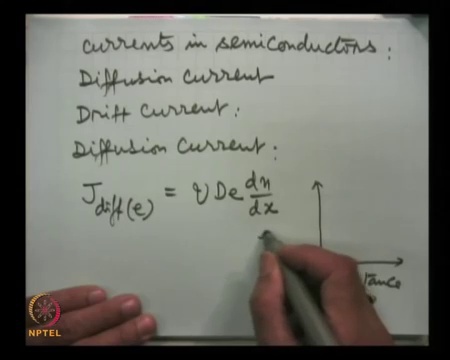 Currents in semiconductors:
Diffusion Current
Drift Current:
Diffusion Current:
J diff(e) = q De dn/dx
tance
NPTEL